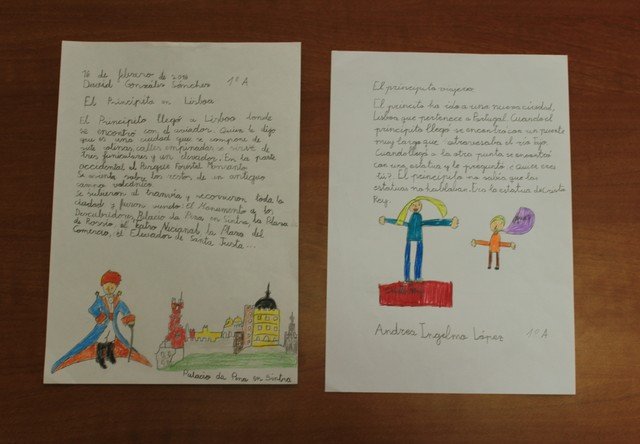 16 de febrero de 2016
David González Sánchez 1º A
El Principito en Lisboa
El Principito llegó a Lisboa donde
se encontró con el aviador. Quien le dijo
que es una ciudad que se compone de
siete colinas, calles empinadas se sirve de
tres funiculares y un elevador. En la parte
occidental el Parque Forestal Monsanto
Se asienta sobre los restos de un antiguo
campo volcánico.
Se subieron al tranvía y recorrieron toda la
ciudad y fueron viendo: El Monumento a los
Descubridores, Palacio da Pena en Sintra, la Plaza
de Rossio, el Teatro Nacional, la Plaza del
Comercio, el Elevador de Santa Justa...
Palacio da Pena en Sintra
El principito viajero
El principito ha ido a una nueva ciudad,
Lisboa, que pertenece a Portugal. Cuando el
principito llego se encontró con un puente
muy largo que atravesaba el río tajo.
Cuando llegó a la otra punta se encontró
con una estatua y le preguntó: ¿Quién eres
tú?. El principito no sabía que las
estatuas no hablaban. Era la estatua de cristo
Rey.
Andrea Ingelmo López 1º A